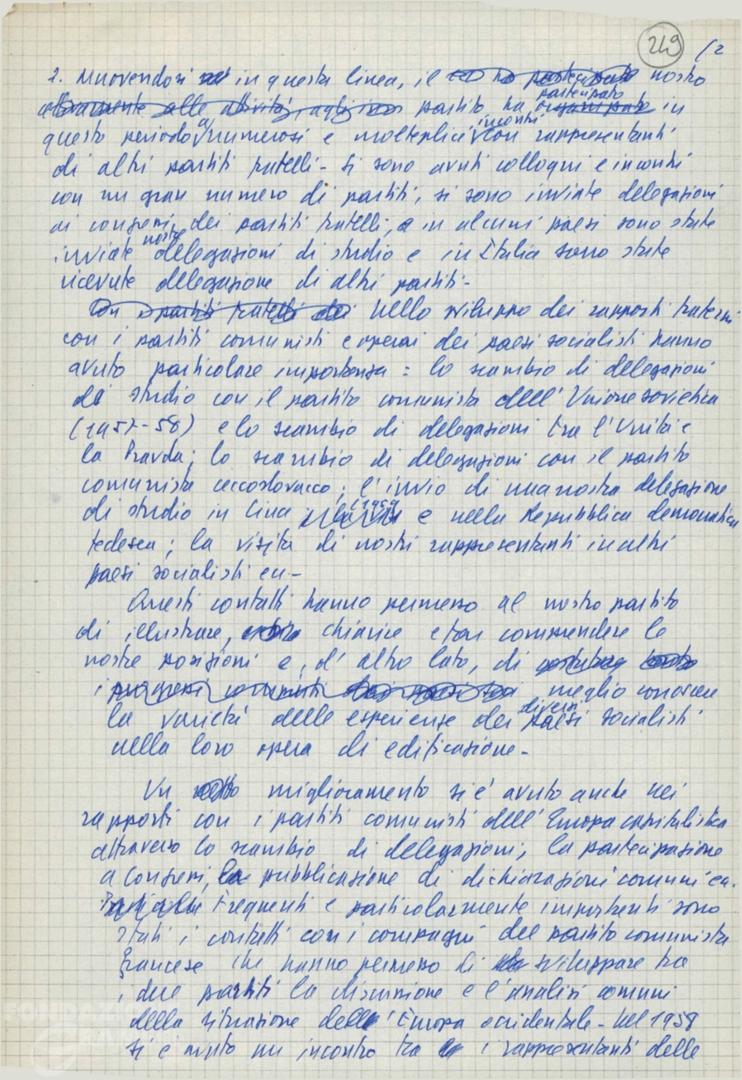 249 /2
2. Muovendosi in questa linea, il nostro
partecipato
partito ha in
incontri
questo periodo a numerosi e molteplici con rappresentanti
di altri partiti fratelli - si sono avuti colloqui e incontri
con un gran numero di partiti, si sono inviate delegazioni
ai congressi dei partiti fratelli, e in alcuni paesi sono state
nostre
inviate delegazioni di studio e in Italia sono state
ricevute delegazione di altri partiti -
Con i partiti fratelli dei Nello sviluppo dei rapporti fraterni
con i partiti comunisti e operai dei paesi socialisti hanno
avuto particolare importanza: lo scambio di delegazioni
di studio con il partito comunista dell'Unione sovietica
(1957-58) e lo scambio di delegazioni tra l'Unità e
la Pravda; lo scambio di delegazioni con il partito
comunista cecoslovacco; l'invio di una nostra delegazione
1959
di studio in Cina e nella Repubblica democratica
tedesca; la visita di nostri rappresentanti in altri
paesi socialisti ecc -
Questi contatti hanno permesso al nostro partito
di illustrare, chiarire e far comprendere le
nostre posizioni e, d'altro lato, di
i progressi meglio conoscere
diversi
la varietà delle esperienze dei paesi socialisti
nella loro opera di edificazione -
Un miglioramento si è avuto anche nei
rapporti con i partiti comunisti dell'Europa capitalistica
attraverso lo scambio di delegazioni, la partecipazione
a congressi, la pubblicazione di dichiarazioni comuni ecc.
Frequenti e particolarmente importanti sono
stati i contatti con i compagni del partito comunista
francese che hanno permesso di sviluppare tra
i due partiti la discussione e l'analisi comuni
della situazione dell'Europa occidentale - Nel 1958
si è avuto un incontro tra i rappresentanti delle